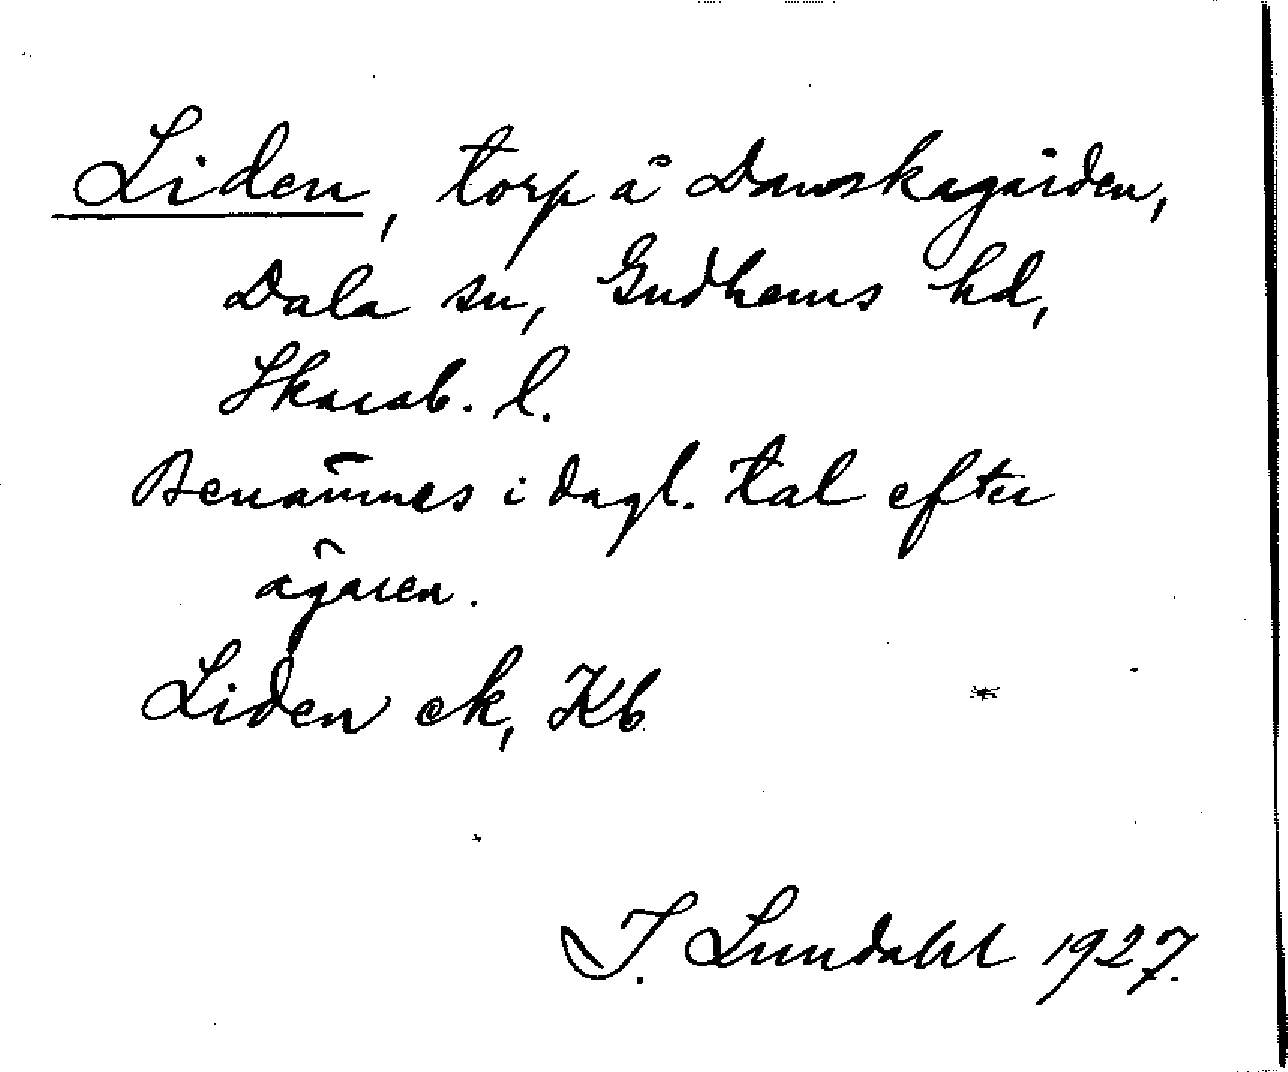 Liden, torp å Danskagården,
Dala sn, Gudhems hd,
Skarab. l.
Benämnes i dagl. tal efter
ägaren.
Liden ek, Kb
I. Lundahl 1927.